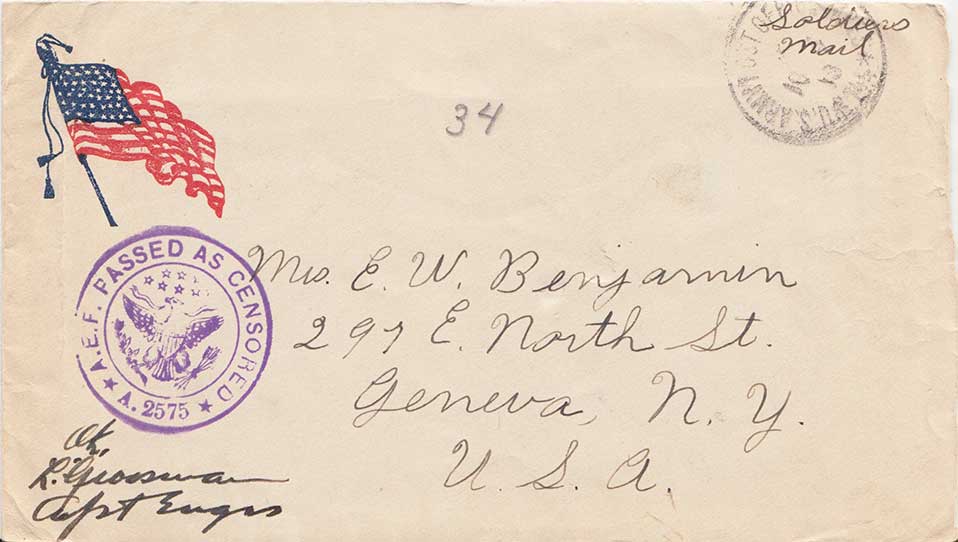 Soldiers
Mail
U.S. ARMY POST OFFICE
10
18
34
A.E.F. PASSED AS CENSORED
A. 2575
Mrs. E. W. Benjamin
297 E. North St.
Geneva, N. Y.
U. S. A.
OK,
L. Grossman
Capt Engrs